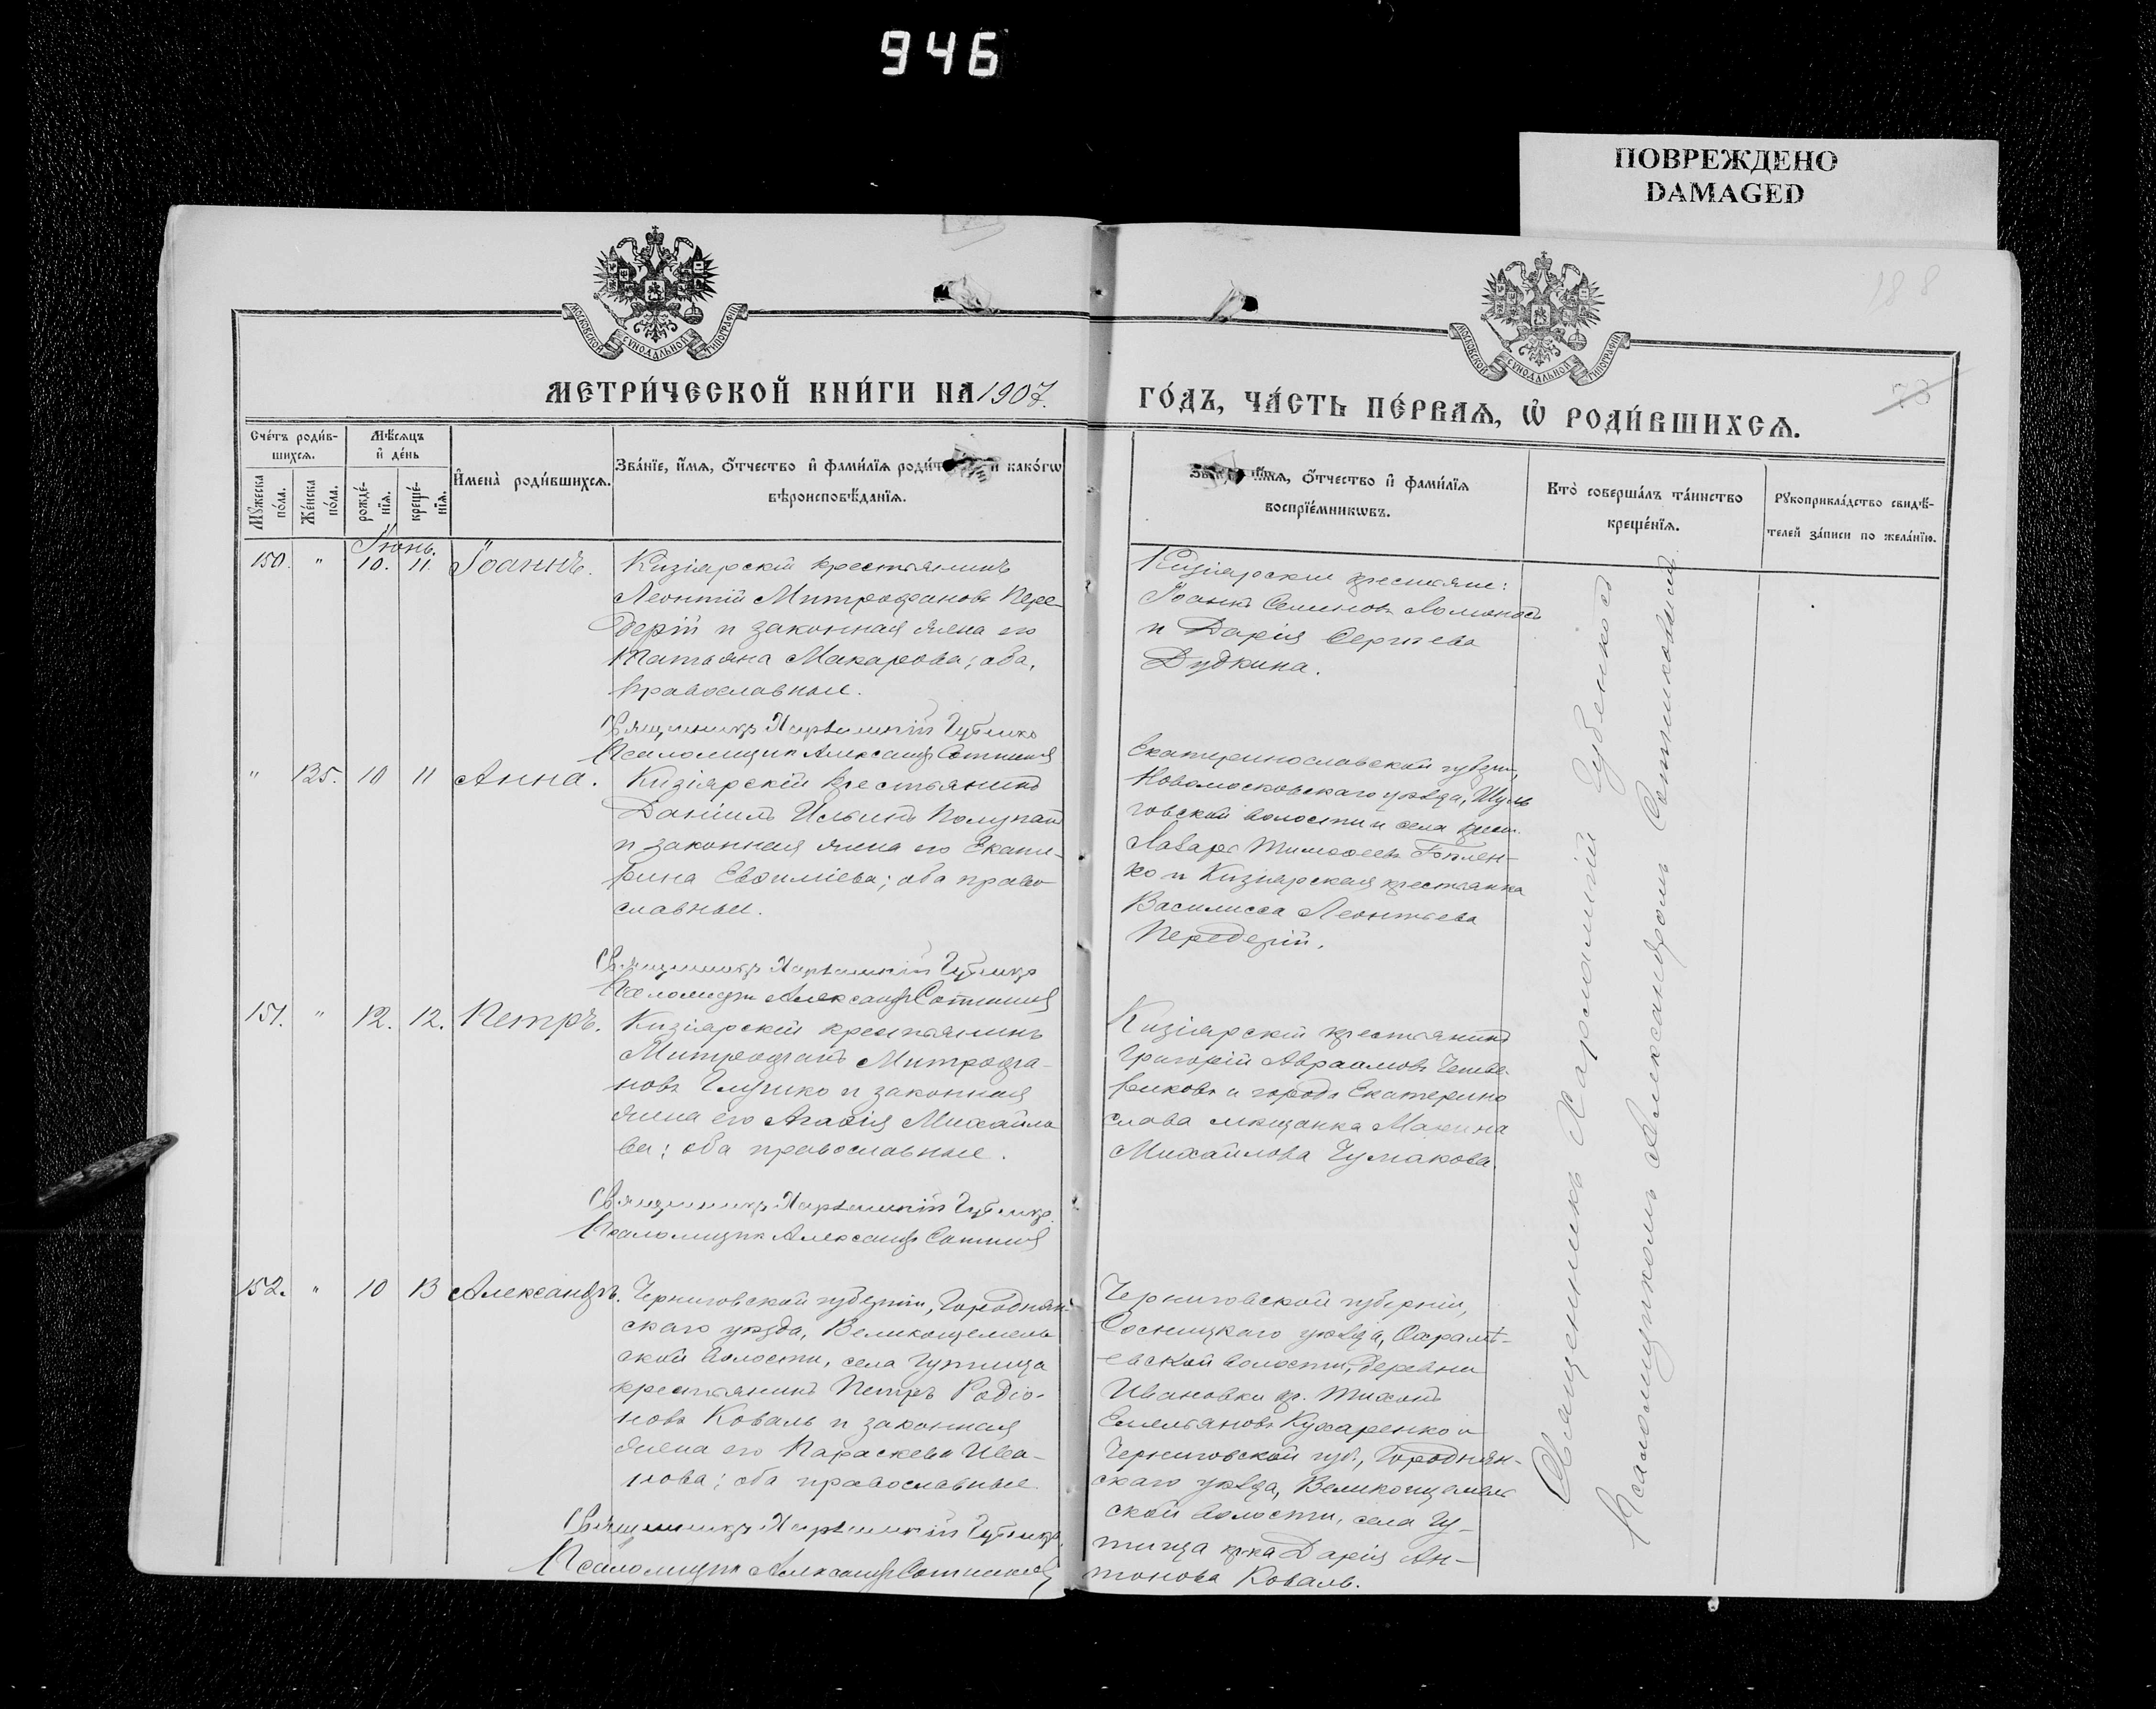 946
ПОВРЕЖДЕНО
DAMAGED
188
МОСКОВСКОЙ СѴНОДАЛЬНОЙ ТИПОГРАФІИ
МОСКОВСКОЙ СѴНОДАЛЬНОЙ ТИПОГРАФІИ
МЕТРИ́ЧЕСКОЙ КНИ́ГИ НА 1907.
ГО́ДЪ, ЧА́СТЬ ПЕ́РВАѦ, Ѡ҆ РОДИ́ВШИХСѦ.
73
Сче́тъ роди́в-
шихсѧ.
Мѣ́сѧцъ
и҆ де́нь
Мꙋ́жеска
по́ла.
Же́нска
по́ла.
рожде́-
нїѧ.
креще́-
нїѧ.
И҆мена̀ роди́вшихсѧ.
Зва́нїе, и҆́мѧ, ѻ҆́тчество и҆ фами́лїѧ роди́т и како́гѡ
вѣроисповѣ́данїѧ.
и҆́мѧ, ѻ҆́тчество и҆ фами́лїѧ
воспрїе́мникѡвъ.
Кто̀ соверша́лъ та́инство
креще́нїѧ.
Рꙋкоприкла́дство свидѣ́-
телей за́писи по жела́нїю.
Іюнь.
150. " 10. 11. Іоаннъ.
Кизіярскій крестьянинъ
Леонтій Митрофановъ Пере-
дерій и законная жена его
Татьяна Макарова; оба,
православные.
Священникъ Харлампій Губенко
Псаломщик Александр Сотников
Кизіярскіе крестьяне:
Іоаннъ Семеновъ Ломоносъ
и Дарія Сергіева
Дудкина.
" 125. 10 11 Анна.
Кизіярскій крестьянинъ
Даніилъ Ильинъ Полупанъ
и законная жена его Екате-
рина Евѳиміева; оба право-
славные.
Священникъ Харлампій Губенко
Псаломщик Александр Сотников
Екатеринославской губерн.,
Новомосковскаго уѣзда, Шуль
говской волости и села крест.
Лазарь Тимоѳеевъ
ко и Кизіярская крестьянка
Василисса Леонтьева
Передерій.
151. " 12. 12. Петръ.
Кизіярскій крестьянинъ
Митрофанъ Митрофа-
новъ Глушко и законная
жена его Агаѳія Михайло
ва; оба православные.
Священникъ Харлампій Губенко
Псаломщик Александр Сотников
Кизіярскій крестьянинъ
Григорій Авраамовъ Четве-
риковъ и города Екатерино
слава мѣщанка Марина
Михайлова Чумакова.
152. " 10 13 Александръ.
Черниговской губерніи, Городнян-
скаго уѣзда, Великощемель
ской волости, села Гутища
крестьянинъ Петръ Родіо-
новъ Коваль и законная
жена его Параскева Ива-
нова; оба православные
Священникъ Харлампій Губенко
Псаломщик Александр Сотников
Черниговской губерніи,
Сосницкаго уѣзда, Охрамѣ-
евской волости, деревни
Ивановки кр. Тихонъ
Емельяновъ Кухаренко и
Черниговской губ., Городнян-
скаго уѣзда, Великощемель
ской волости, села Гу-
тища кр-ка Дарія Ан-
тонова Коваль.
Священникъ Харлампій Губенко съ
Псаломщикомъ Александромъ Сотниковымъ